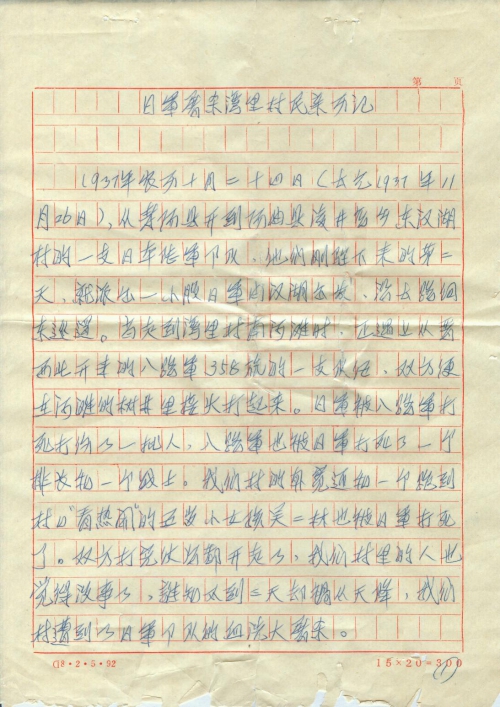 第 页
日军屠杀湾里村民亲历记
1937年农历十月二十四日(公元1937年11
月26日),从寿阳县开到阳曲县凌井店乡东汉湖
村的一支日军 军队,他们刚驻下来的第二
天,就派出一小股日军向汉湖出发,沿公路向
东 。当走到湾里村南河滩时,正遇上从晋
西北开来的八路军358旅的一支队伍,双方便
在河滩的树林里接火打起来。日军被八路军打
死打伤了一批人,八路军也被日军打死了一个
排长和一个战士。我们村的 和一个跑到
村口"看热闹"的五岁小女孩美二材也被日军打死
了。双方打完仗后都开走了,我们村里的人也
觉得没事了,谁知不到三天却祸从天降,我们
村遭到了日军军队的血洗大屠杀。
(18·2·5·92
15×20=300
(1)